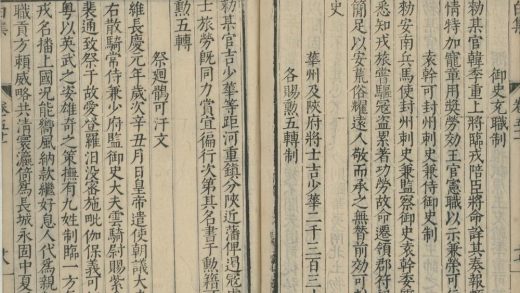 御史充職制
勑某官韓季重上將臨戎陪臣將命詳其奏報
情特加寵章用奬勞効王官憲職以示兼榮可
袁幹可封州刺史兼侍御史制
勑安南兵馬使封州刺史兼監察御史袁幹
悉知戎旅嘗驅寇盜累著功勞故命遷領郡符
簡足以安荒俗耀遠人敬而承之無替前効可
史
華州及陝府將士吉少華二千三百三
各賜勲五轉制
勑某官吉少華等距河重鎮分陝近藩俾遏寇
士旅勞旣同力賞宜徧行次第其名書于勲籍
勲五轉
祭廻鶻可汗文
維長慶元年歲次辛丑月日皇帝遣使朝議大
右散騎常侍兼少府監御史大夫雲騎尉賜紫
裴通致祭于故愛登羅汨没密施毗伽保義可
粵以英武之姿雄奇之策撫有九姓制臨一方
戎名播上國況能嚮風納款繼好息人代為親
職貢方頼威略共清寰瀛倚為長城永固中夏
白集